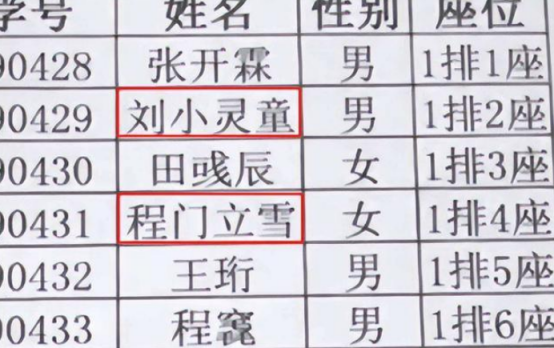 学号 姓名 性别 座位
90428 张开霖 男 1排1座
90429 刘小灵童 男 1排2座
90430 田彧辰 女 1排3座
90431 程门立雪 女 1排4座
90432 王珩 男 1排5座
90433 程 男 1排6座